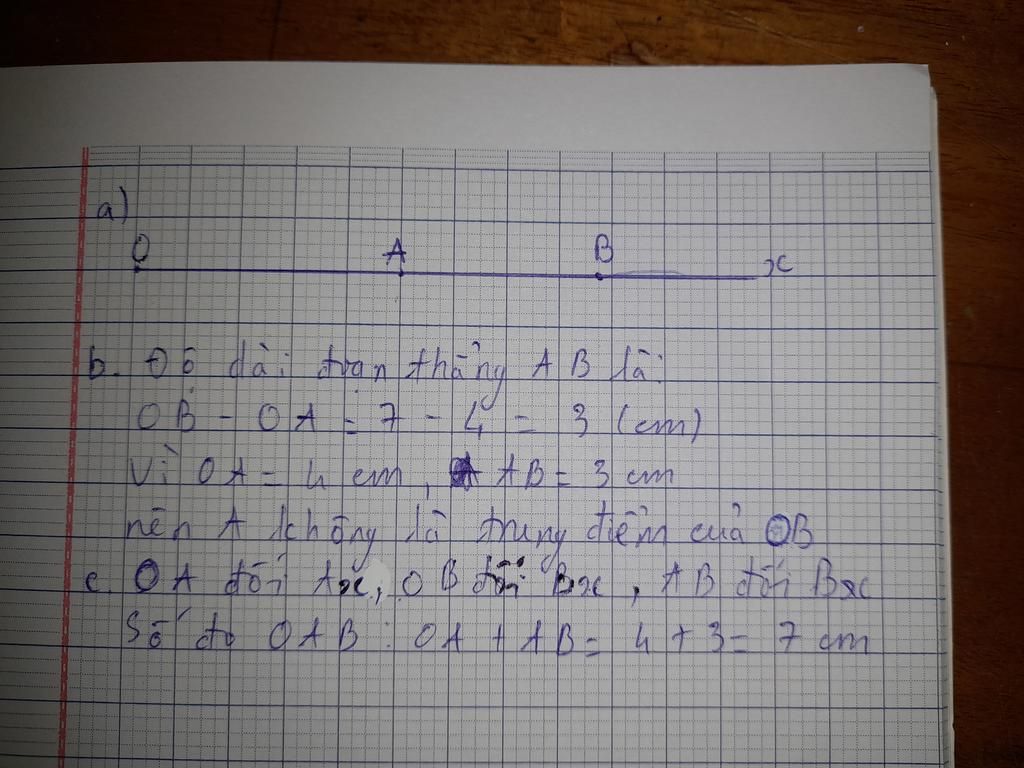 a)
O A B x
b. Độ dài đoạn thẳng AB là:
OB - OA = 7 - 4 = 3 (cm)
Vì OA = 4 cm, AB = 3 cm
nên A không là trung điểm của OB
c. OA đối Ax, OB đối Bx, AB đối Bx
Số đo OAB : OA + AB = 4 + 3 = 7 cm